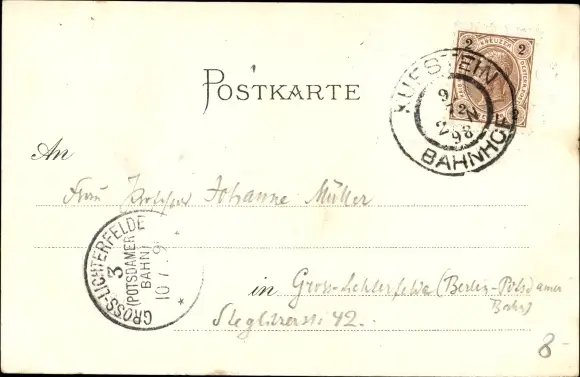 POSTKARTE
2 KREUZER 2
KUFSTEIN
9
12 N
98
BAHNHOF
An
Frau Professor Johanne Müller
GROSS-LICHTERFELDE
3
(POTSDAMER
BAHN)
10 7 9
*
in Gross-Lichterfelde (Berlin-Potsdamer
Bahn)
Steglitzerstr 42.
8-